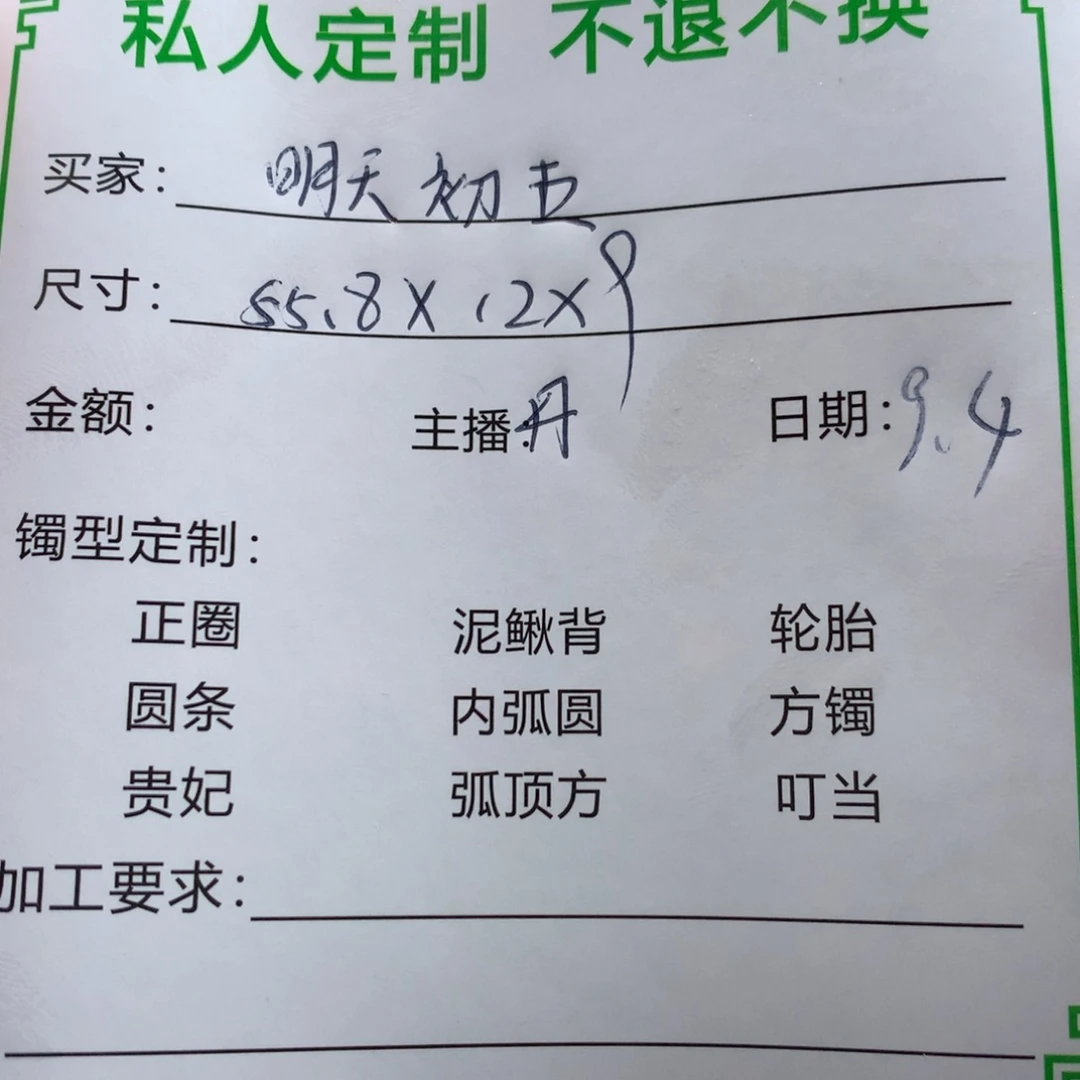 私人定制 不退不换
买家: 明天初五
尺寸: 55.8X12X9
金额: 主播: 丹 日期: 9.4
镯型定制:
正圈 泥鳅背 轮胎
圆条 内弧圆 方镯
贵妃 弧顶方 叮当
加工要求: